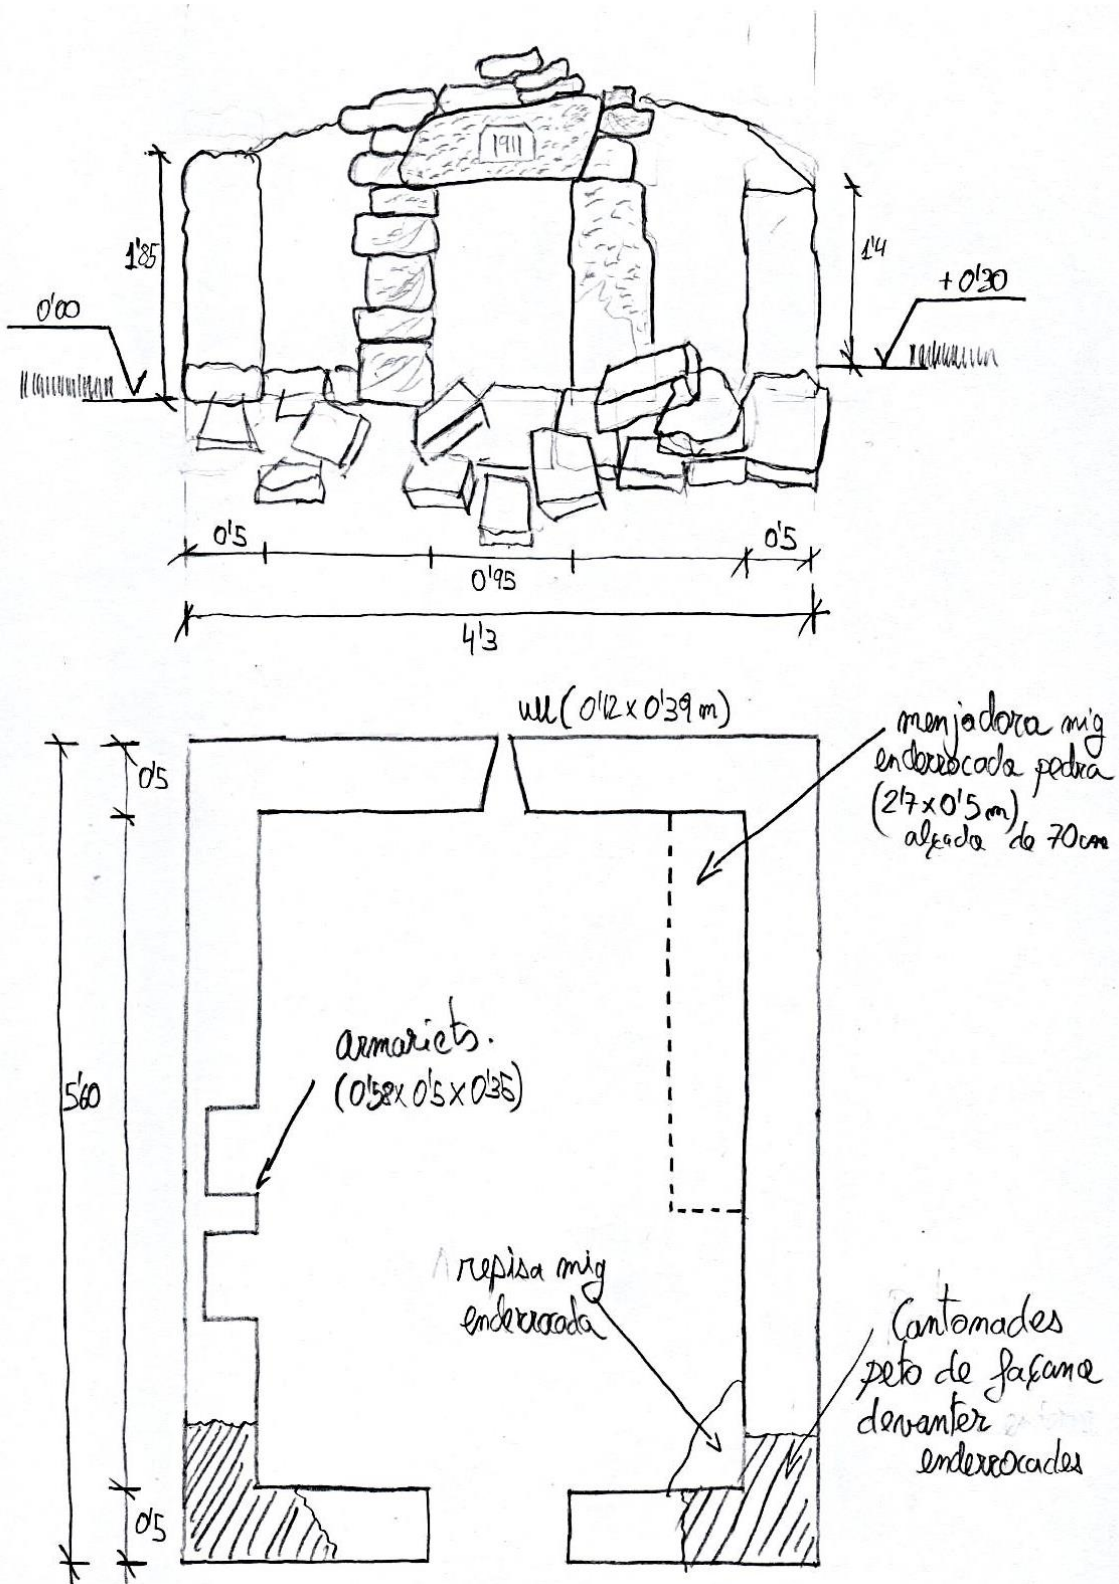 1911
1'85
1'4
0'00
+0'30
0'5
0'95
0'5
4'3
ull (0'12 x 0'39 m)
menjadora mig
enderrocada pedra
(2'7 x 0'5 m)
alçada de 70 cm
0'5
5'60
armariets.
(0'58 x 0'5 x 0'35)
repisa mig
enderrocada
Cantonades
peto de façana
devanter
enderrocades
0'5